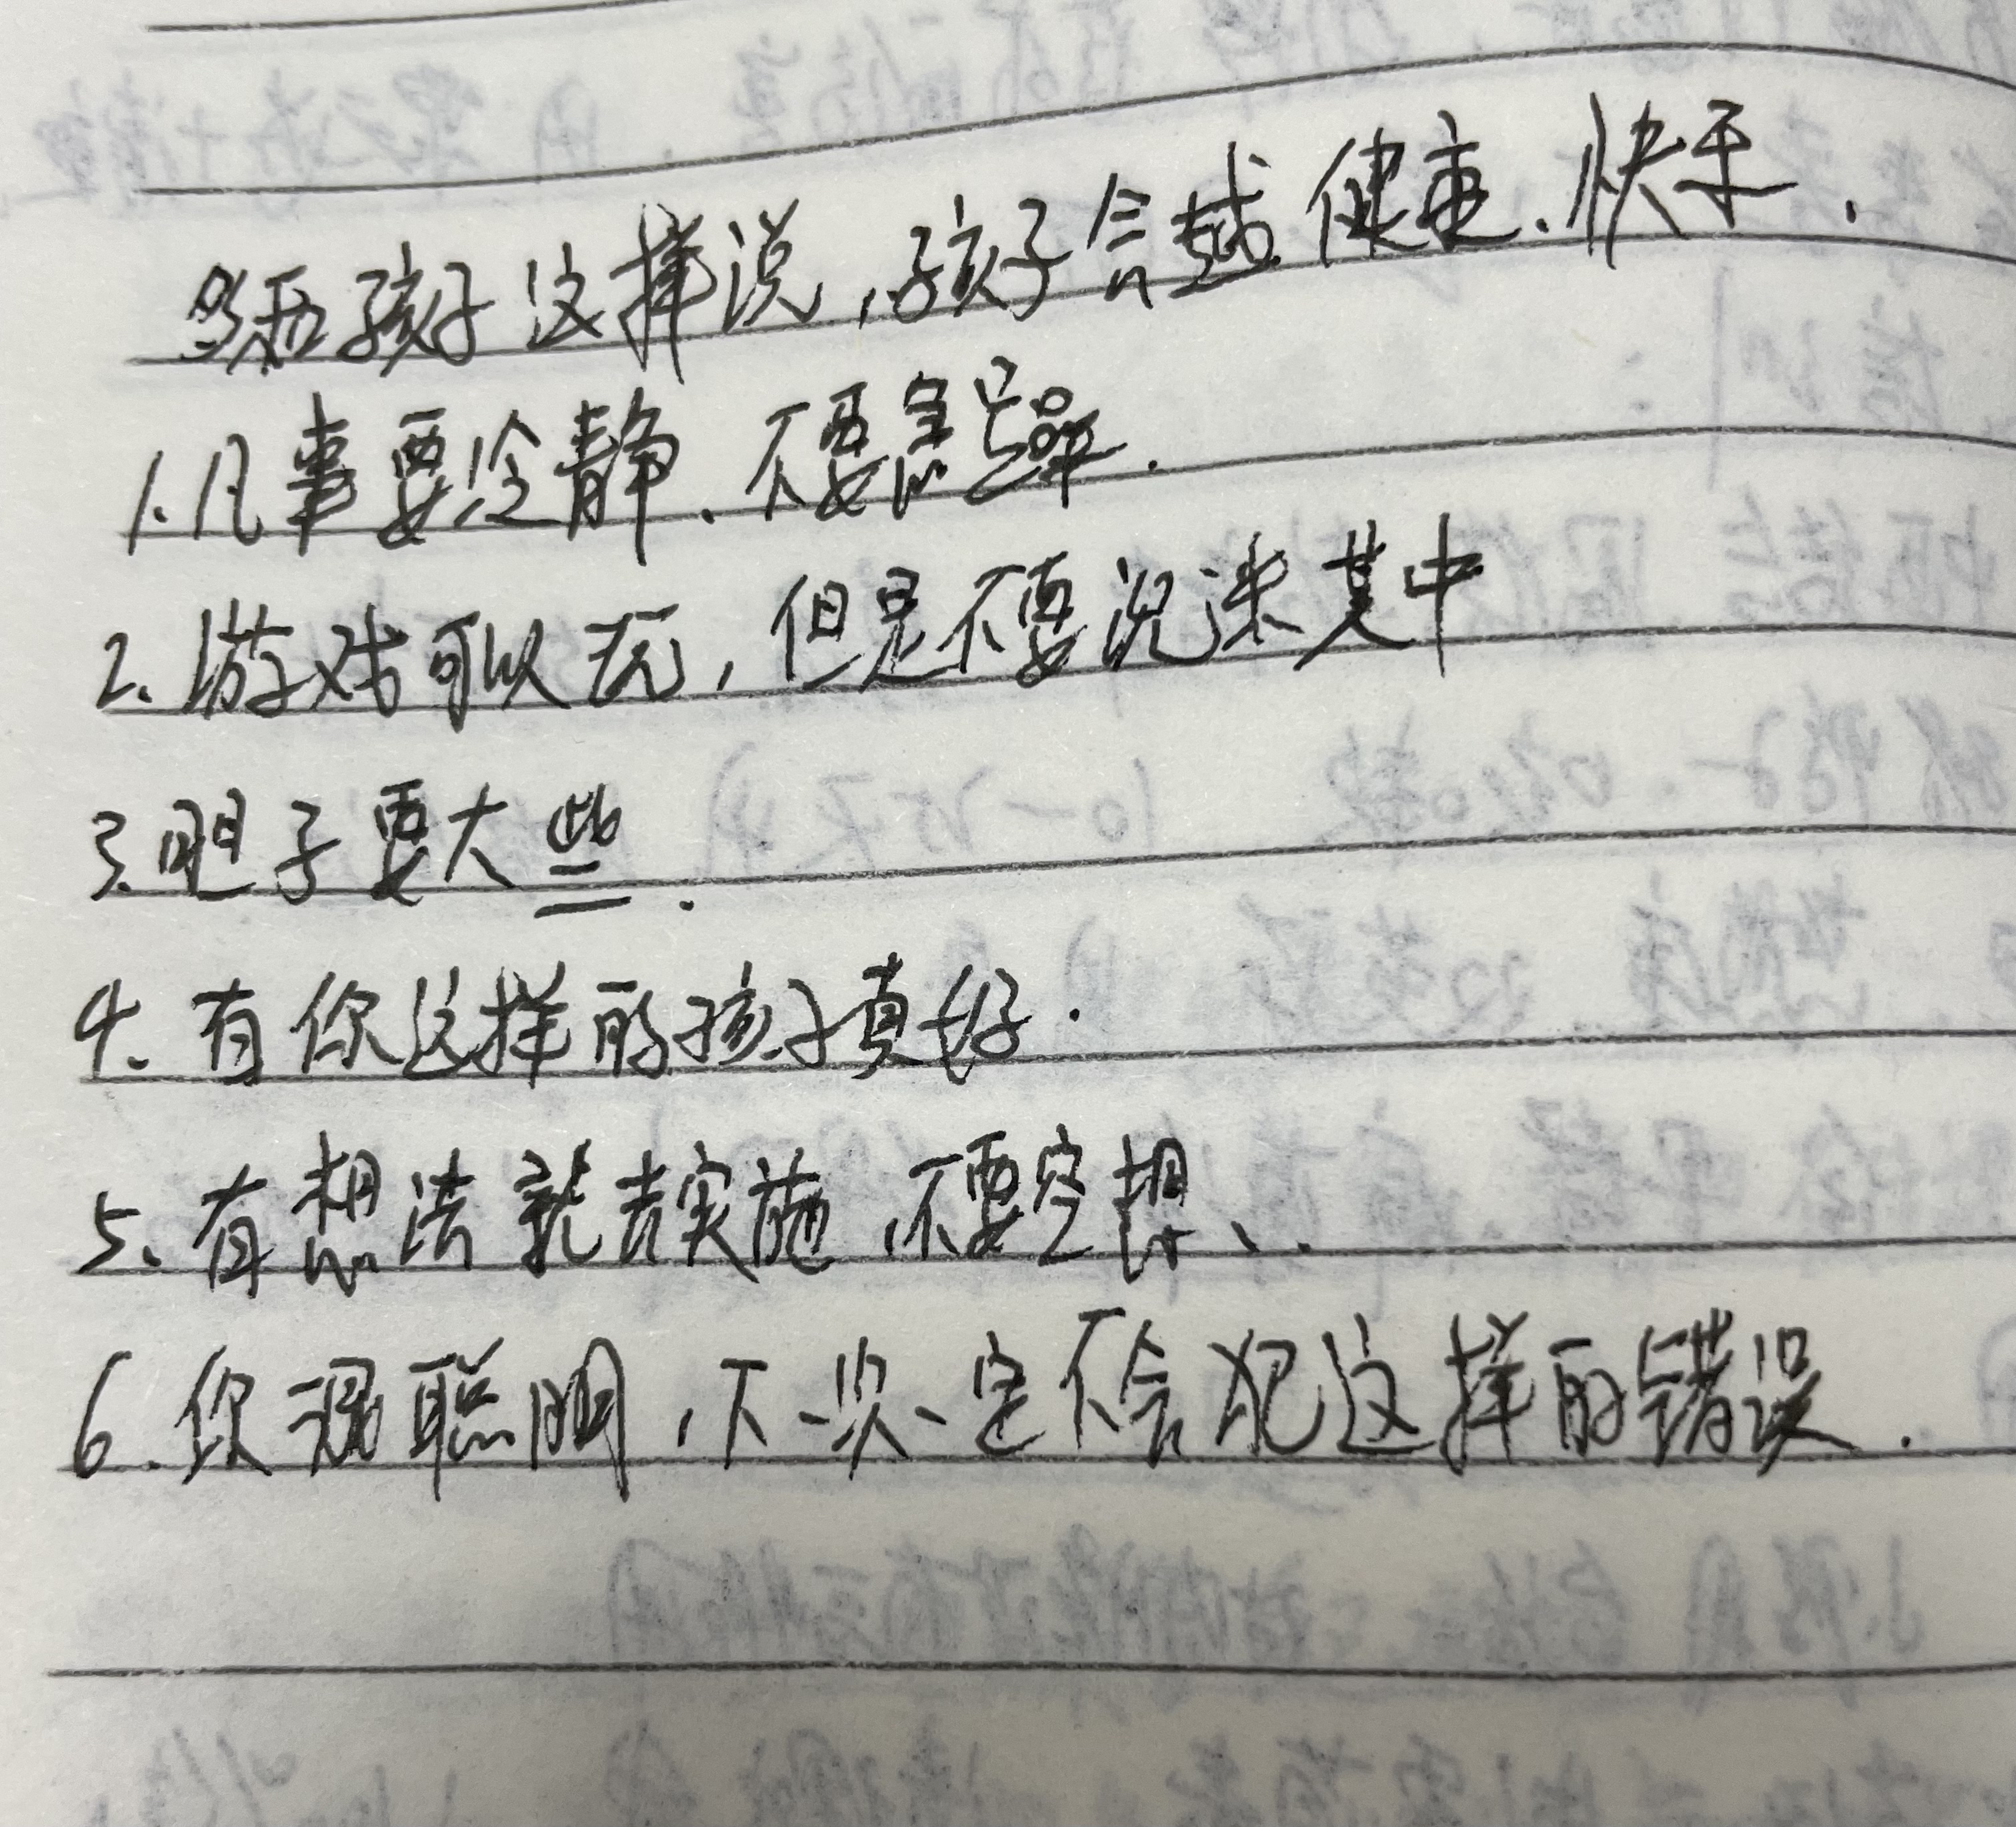 多和孩子这样说,孩子会越健康、快乐.
1.凡事要冷静、不要急躁.
2.游戏可以玩,但是不要沉迷其中
3.胆子要大些.
4.有你这样的孩子真好.
5.有想法就去实施,不要空想、.
6.你很聪明,下一次一定不会犯这样的错误.